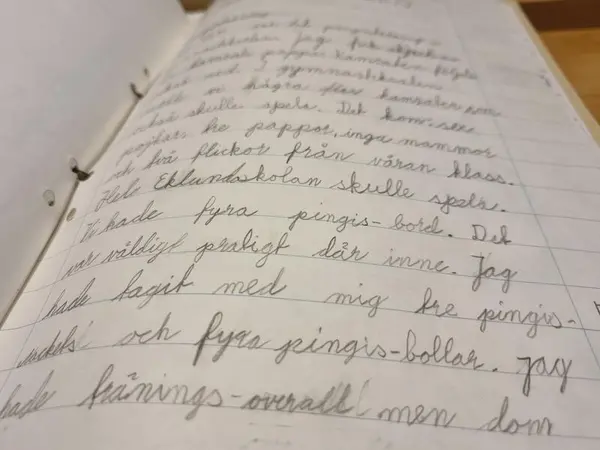 det
Jag fick
pappa. Kamraten följde
med i gymnastiksalen.
vi några fler kamrater som
också skulle spela. Det kom sex
pojkar, tre pappor, inga mammor
och två flickor från våran klass.
Hela Eklundaskolan skulle spela.
Vi hade fyra pingis-bord. Det
var väldigt pratigt där inne. Jag
hade tagit med mig tre pingis-
rackets och fyra pingis-bollar. Jag
hade tränings-overall men dom